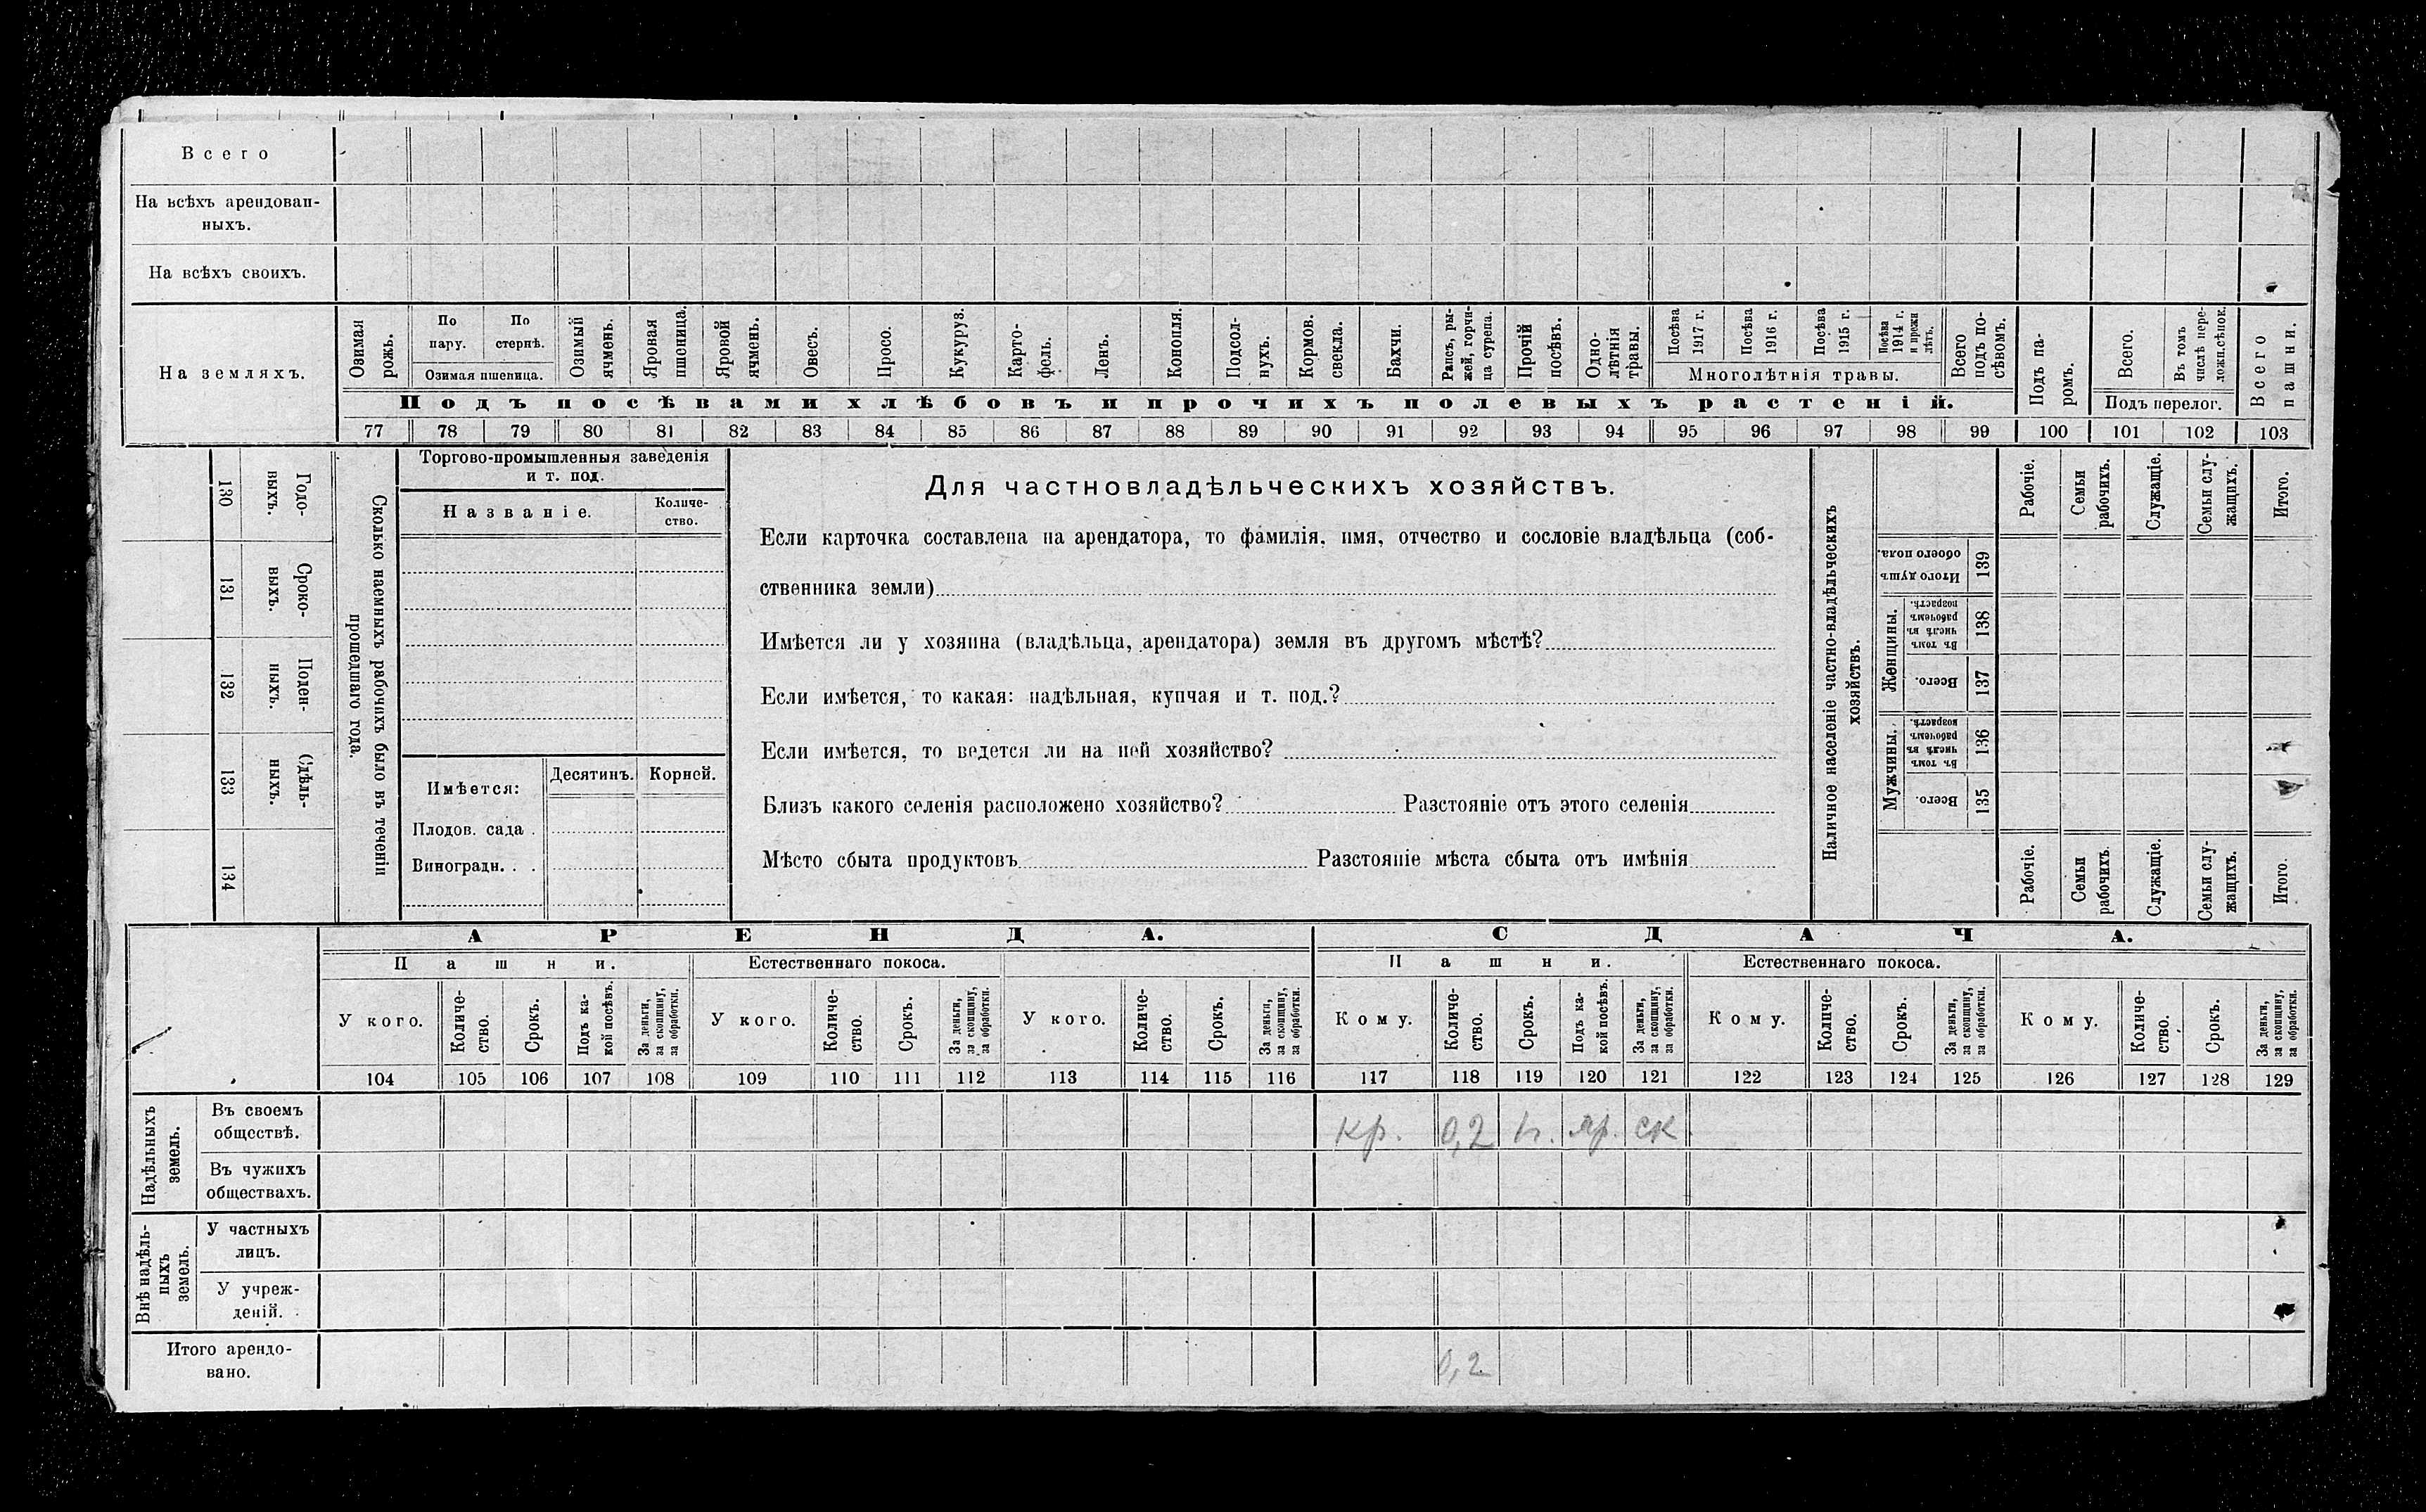 Всего
На всѣхъ арендован-
ныхъ.
На всѣхъ своихъ.
На земляхъ.
Озимая рожь.
По пару.
По стернѣ.
Озимая пшеница.
Озимый ячмень.
Яровая пшеница.
Яровой ячмень.
Овесъ.
Просо.
Кукуруз.
Карто-
фель.
Ленъ.
Конопля.
Подсол-
нухъ.
Кормов. свекла.
Бахчи.
Рапсъ, ры-
жей, горчи-
ца сурепа.
Прочій посѣвъ.
Одно-
лѣтнія травы.
Посѣва 1917 г.
Посѣва 1916 г.
Посѣва 1915 г.
Посѣва 1914 г. и прежн лѣтъ.
Многолѣтнія травы.
Всего подъ по-
сѣвомъ.
Подъ па-
ромъ.
Всего.
Въ томъ числѣ пере-
ложн.сѣнок.
Подъ перелог.
Всего пашни.
Подъ посѣвами хлѣбовъ и прочихъ полевыхъ растеній.
77 78 79 80 81 82 83 84 85 86 87 88 89 90 91 92 93 94 95 96 97 98 99 100 101 102 103
Годо-
выхъ.
130
Сроко-
выхъ.
131
Поден-
ныхъ.
132
Сдѣль-
ныхъ.
133
134
Сколько наемныхъ рабочихъ было въ теченіи
прошедшаго года.
Торгово-промышленныя заведенія
и т. под.
Названіе.
Количе-
ство.
Имѣется:
Десятинъ.
Корней.
Плодов. сада .
Виноградн. . .
Для частновладѣльческихъ хозяйствъ.
Если карточка составлена на арендатора, то фамилія, имя, отчество и сословіе владѣльца (соб-
ственника земли)
Имѣется ли у хозяина (владѣльца, арендатора) земля въ другомъ мѣстѣ?
Если имѣется, то какая: надѣльная, купчая и т. под.?
Если имѣется, то ведется ли на ней хозяйство?
Близъ какого селенія расположено хозяйство? Разстояніе отъ этого селенія
Мѣсто сбыта продуктовъ Разстояніе мѣста сбыта отъ имѣнія
Наличное населеніе частно-владѣльческихъ
хозяйствъ.
Рабочіе.
Семьи рабочихъ.
Служащіе.
Семьи слу-
жащихъ.
Итого.
Итого душъ обоего пола.
139
Женщины.
Въ томъ числѣ въ рабочемъ возрастѣ.
138
Всего.
137
Мужчины.
Въ томъ числѣ въ рабочемъ возрастѣ.
136
Всего.
135
Рабочіе.
Семьи рабочихъ.
Служащіе.
Семьи слу-
жащихъ.
Итого.
АРЕНДА.
СДАЧА.
Пашни.
Естественнаго покоса.
Пашни.
Естественнаго покоса.
У кого.
Количе-
ство.
Срокъ.
Подъ ка-
кой посѣвъ.
За деньги, за скопщину, за обработки.
У кого.
Количе-
ство.
Срокъ.
За деньги, за скопщину, за обработки.
У кого.
Количе-
ство.
Срокъ.
За деньги, за скопщину, за обработки.
Кому.
Количе-
ство.
Срокъ.
Подъ ка-
кой посѣвъ.
За деньги, за скопщину, за обработки.
Кому.
Количе-
ство.
Срокъ.
За деньги, за скопщину, за обработки.
Кому.
Количе-
ство.
Срокъ.
За деньги, за скопщину, за обработки.
104 105 106 107 108 109 110 111 112 113 114 115 116 117 118 119 120 121 122 123 124 125 126 127 128 129
Надѣльныхъ
земель.
Въ своемъ
обществѣ.
кр. 0,2 яр. ск
Въ чужихъ
обществахъ.
Внѣ надѣль-
ныхъ
земель.
У частныхъ
лицъ.
У учреж-
деній.
Итого арендо-
вано.
0,2